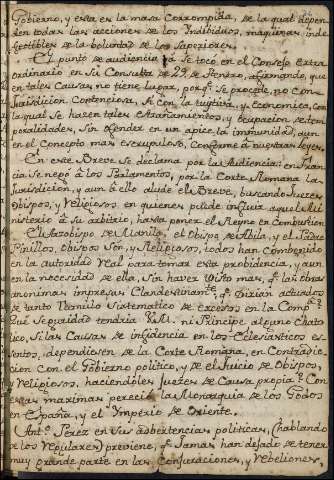 Gobierno, y esta es la masa Corrompida, de la qual depen-
den todas las acciones de los Individuos, maquinas inde-
fectibles de la boluntad de los Superiores.
El punto de audiencia ya se tocó en el Consejo Extra-
ordinario en su Consulta de 29 de Henero, afirmando, que
en tales Causas no tiene lugar, porq.e se procede, no Con
Jurisdicion Contenciosa, si con la tuytiva, y economica, con
la qual se hazen tales extrañamientos, y ocupacion de tem-
poralidades, sin ofender en un apice la immunidad, aun
en el Concepto mas escrupuloso, conforme á nuestras leyes.
En este Breve se declama por la Audiencia: en Fran-
cia se negó á los Parlamentos, por la Corte Romana la
Jurisdicion, y aun á ello alude el Breve, buscando Jueces
Obispos, y Religiosos en quienes pueda influir aquel Mi-
nisterio á su arbitrio, hasta poner el Reyno en Combustion
El Arzobispo de Manila, el Obispo de Abila, y el Padre
Pinillos, Obispos son, y Religiosos, todos han Combenido
en la autoridad Real para tomar esta probidencia, y aun
en la necesidad de ella, sin haver Visto mas, q.e las obras
anonimas impresas Clandestinam.te, q.e dirian actuados
de tanto Cumulo Sistematico de excesos en la Comp.a?
Qué Seguridad tendria V.M. ni Principe alguno Chato-
lico, si las Causas de infidencia en los Eclesiasticos es-
sentos, dependiesen de la Corte Romana, en Contradic-
cion con el Gobierno politico, y de el Juicio de Obispos,
y Religiosos, haciendoles Juezes de Causa propia? Con
estas maximas pereció la Monarquia de los Godos
en España, y el Ymperio de Oriente.
Ant.o Perez en sus adbertencias politicas, (hablando
de los Regulares) previene, q.e Jamas han dejado de tener
muy grande parte en las Conjuraciones, y rebeliones,